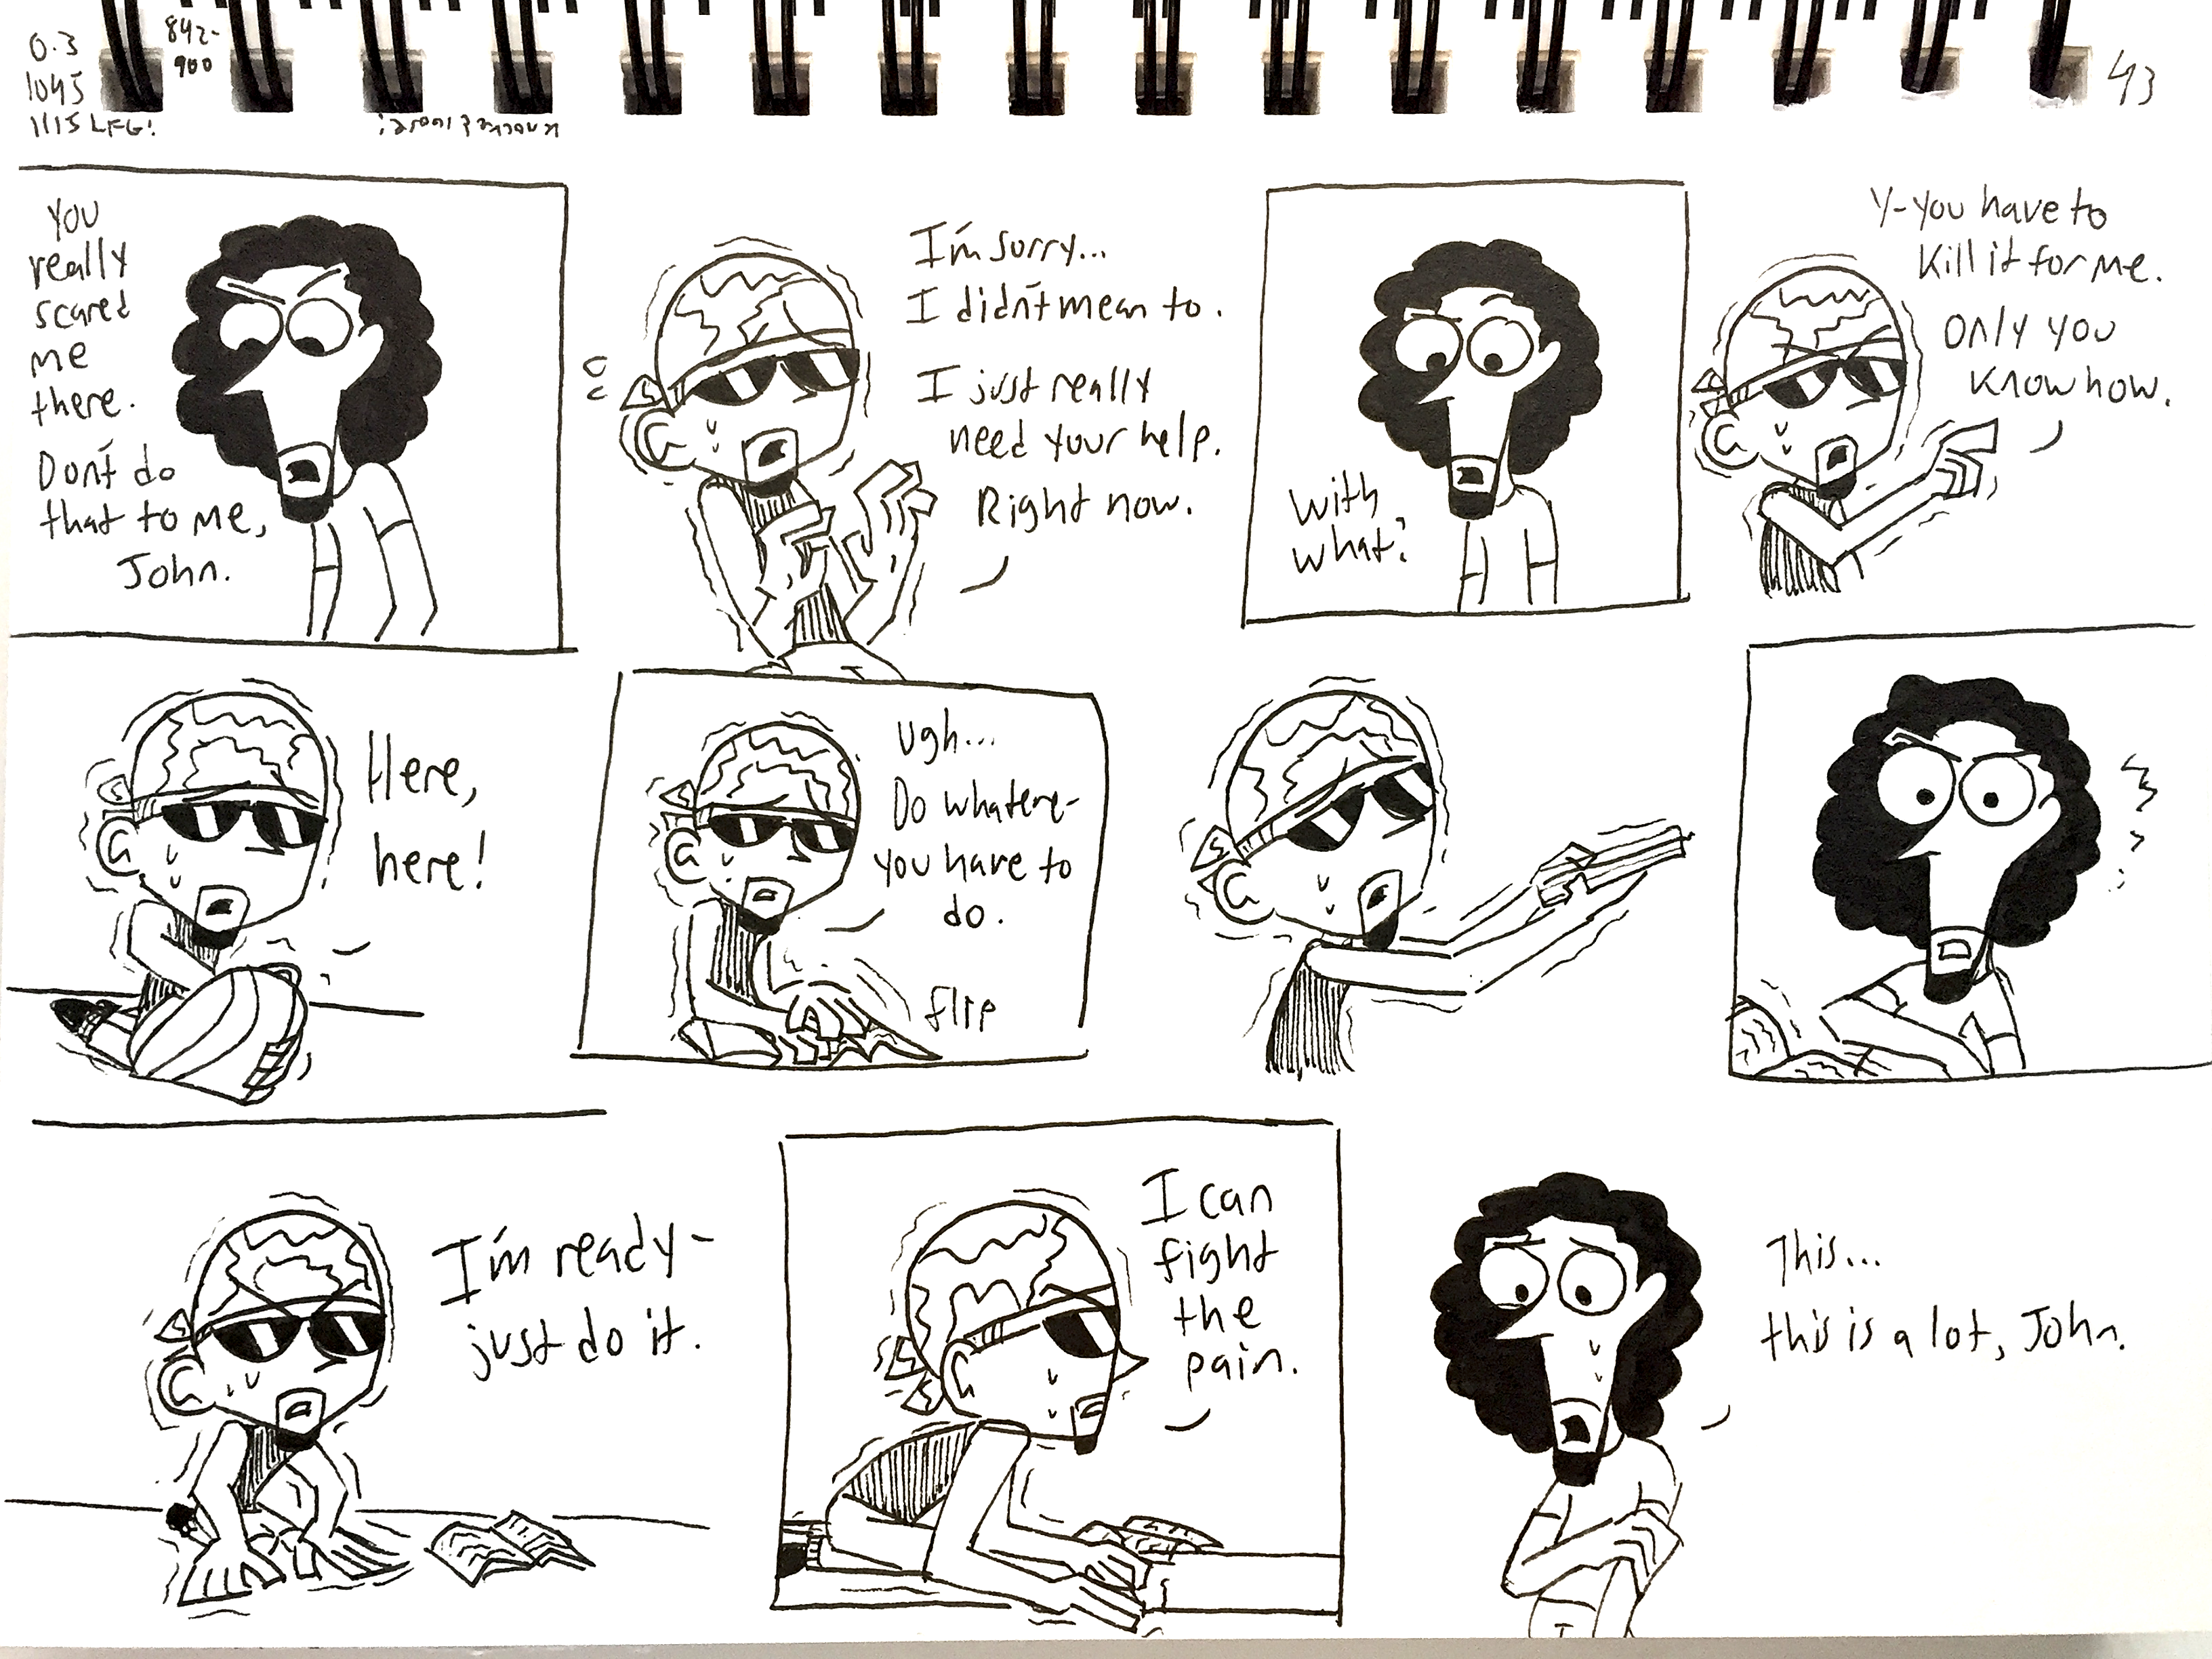 0.3
1045
1115 LFG!
842-
900
43
You
really
scared
me
there.
Don't do
that to me,
John.
I'm sorry...
I didn't mean to.
I just really
need your help.
Right now.
With
what?
Y-you have to
Kill it for me.
Only you
Know how.
Here,
here!
Ugh...
Do whatere-
you have to
do.
flip
I'm ready-
just do it.
I can
fight
the
pain.
This...
this is a lot, John.